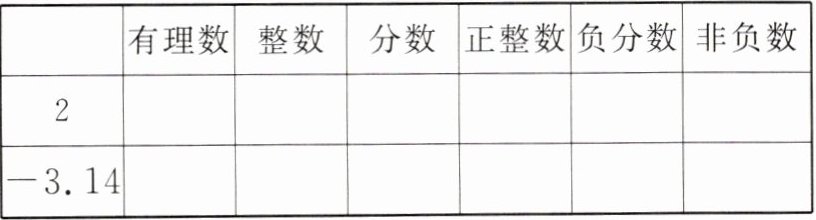 有理数 整数 分数 正整数 负分数 非负数
2
-3.14